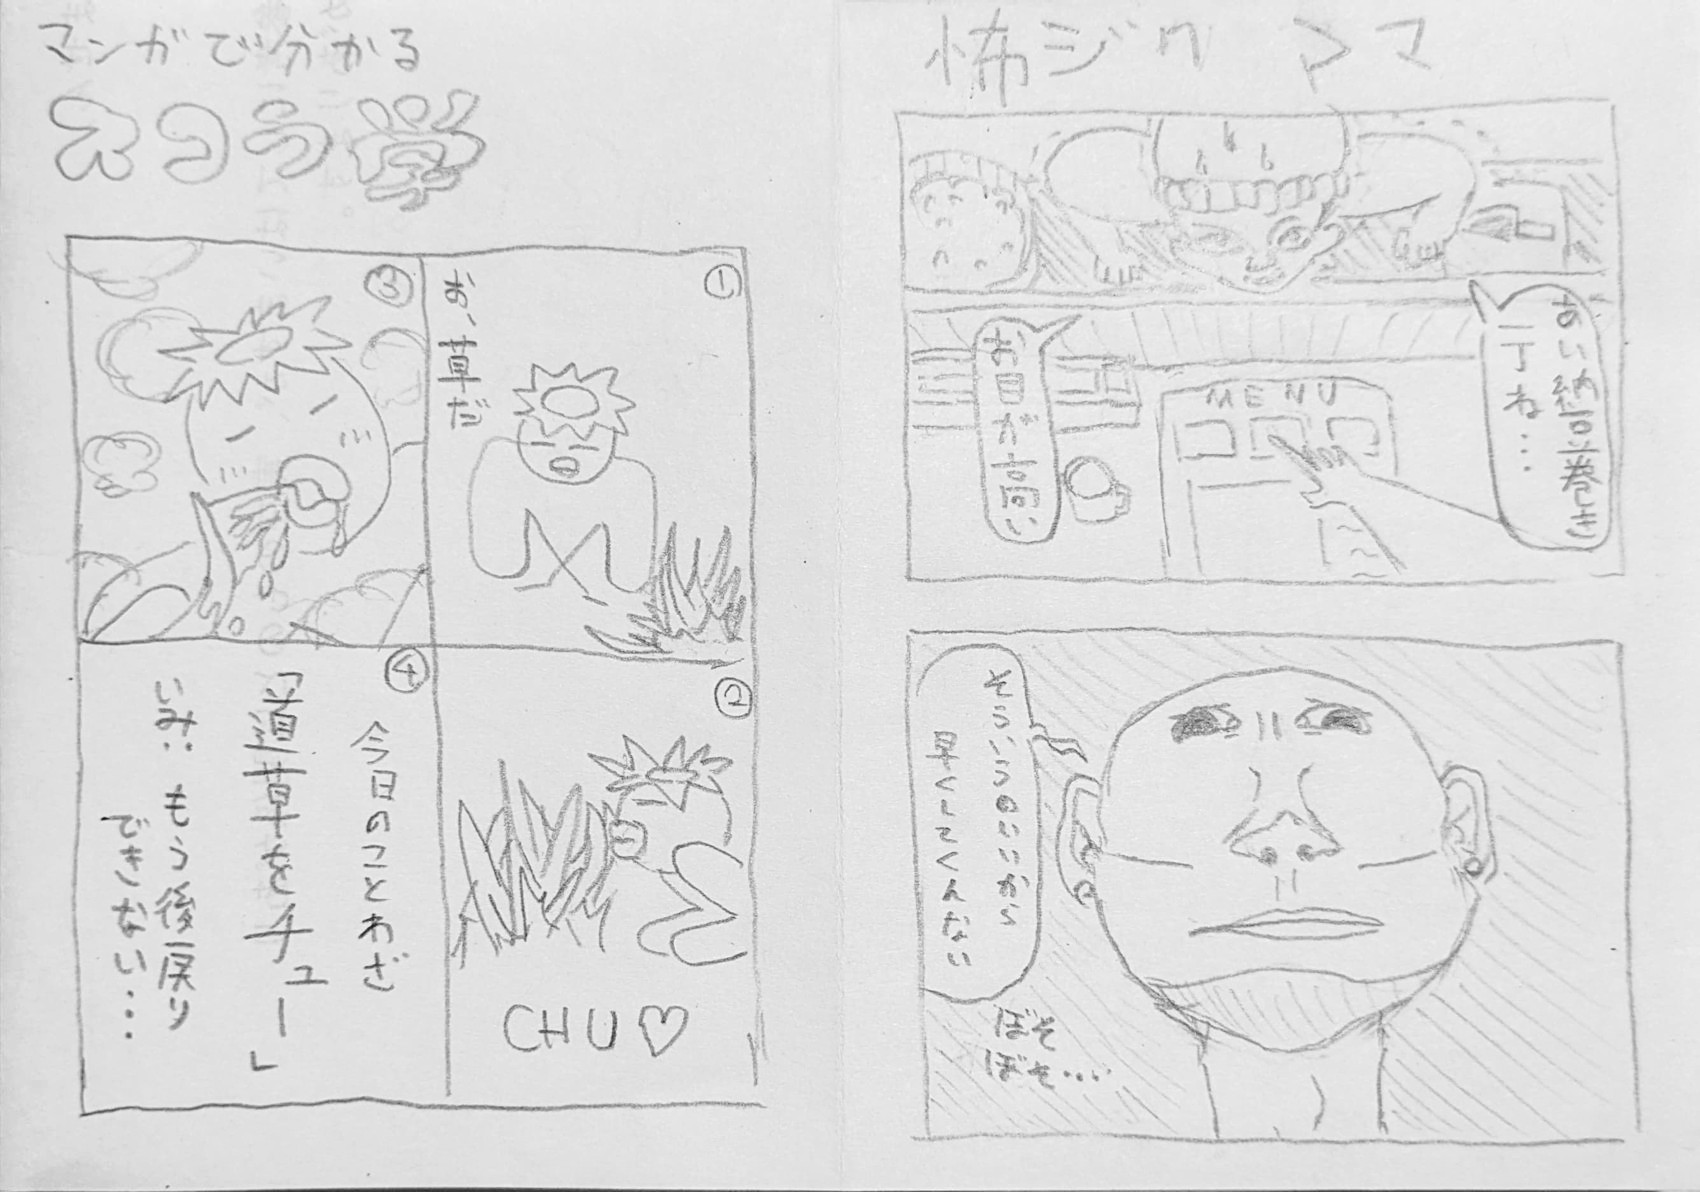 怖ジク ママ
あい納豆巻き
一丁ね…
MENU
お目が高い
そういうのいいから
早くしてくんない
ぼそ
ぼそ…
マンガで分かる
①
お、草だ
②
CHU♡
③
④
今日のことわざ
「道草をチュー」
いみ:もう後戻り
できない…